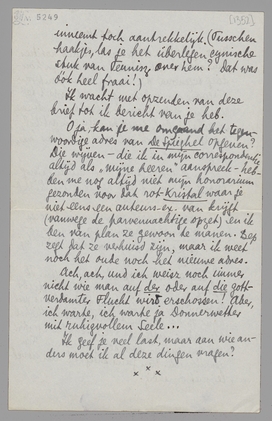 5249
inneemt toch aantrekkelijk. (Tusschen
haakjes, las je het überlegen cynische
stuk van Tennisz over hem? Dat was
óók heel fraai!)
Ik wacht met opzenden van deze
brief tot ik bericht van je heb.
O ja, kan je me omgaand het tegen-
woordige adres van De Spieghel opgeven?
Die wijven – die ik in mijn correspondentie
altijd als „mijne heeren" aanspreek – heb-
ben me nog altijd niet mijn honorarium
gezonden voor dat rot-Kristal waar je
niet eens een auteurs-ex. van krijgt
(vanwege de parvenuachtige opzet) en ik
ben van plan ze gewoon te manen. Bep
zegt dat ze verhuisd zijn, maar ik weet
noch het oude noch het nieuwe adres.
Ach, ach, und ich weisz noch immer
nicht wie man auf der oder auf die gott-
verdamte Flucht wird erschossen! Aber,
ich warte, ich warte ja Donnerwetter
mit ruhigvollem Seele...
Ik geef je veel last, maar aan wie an-
ders moet ik al deze dingen vragen?
x x x